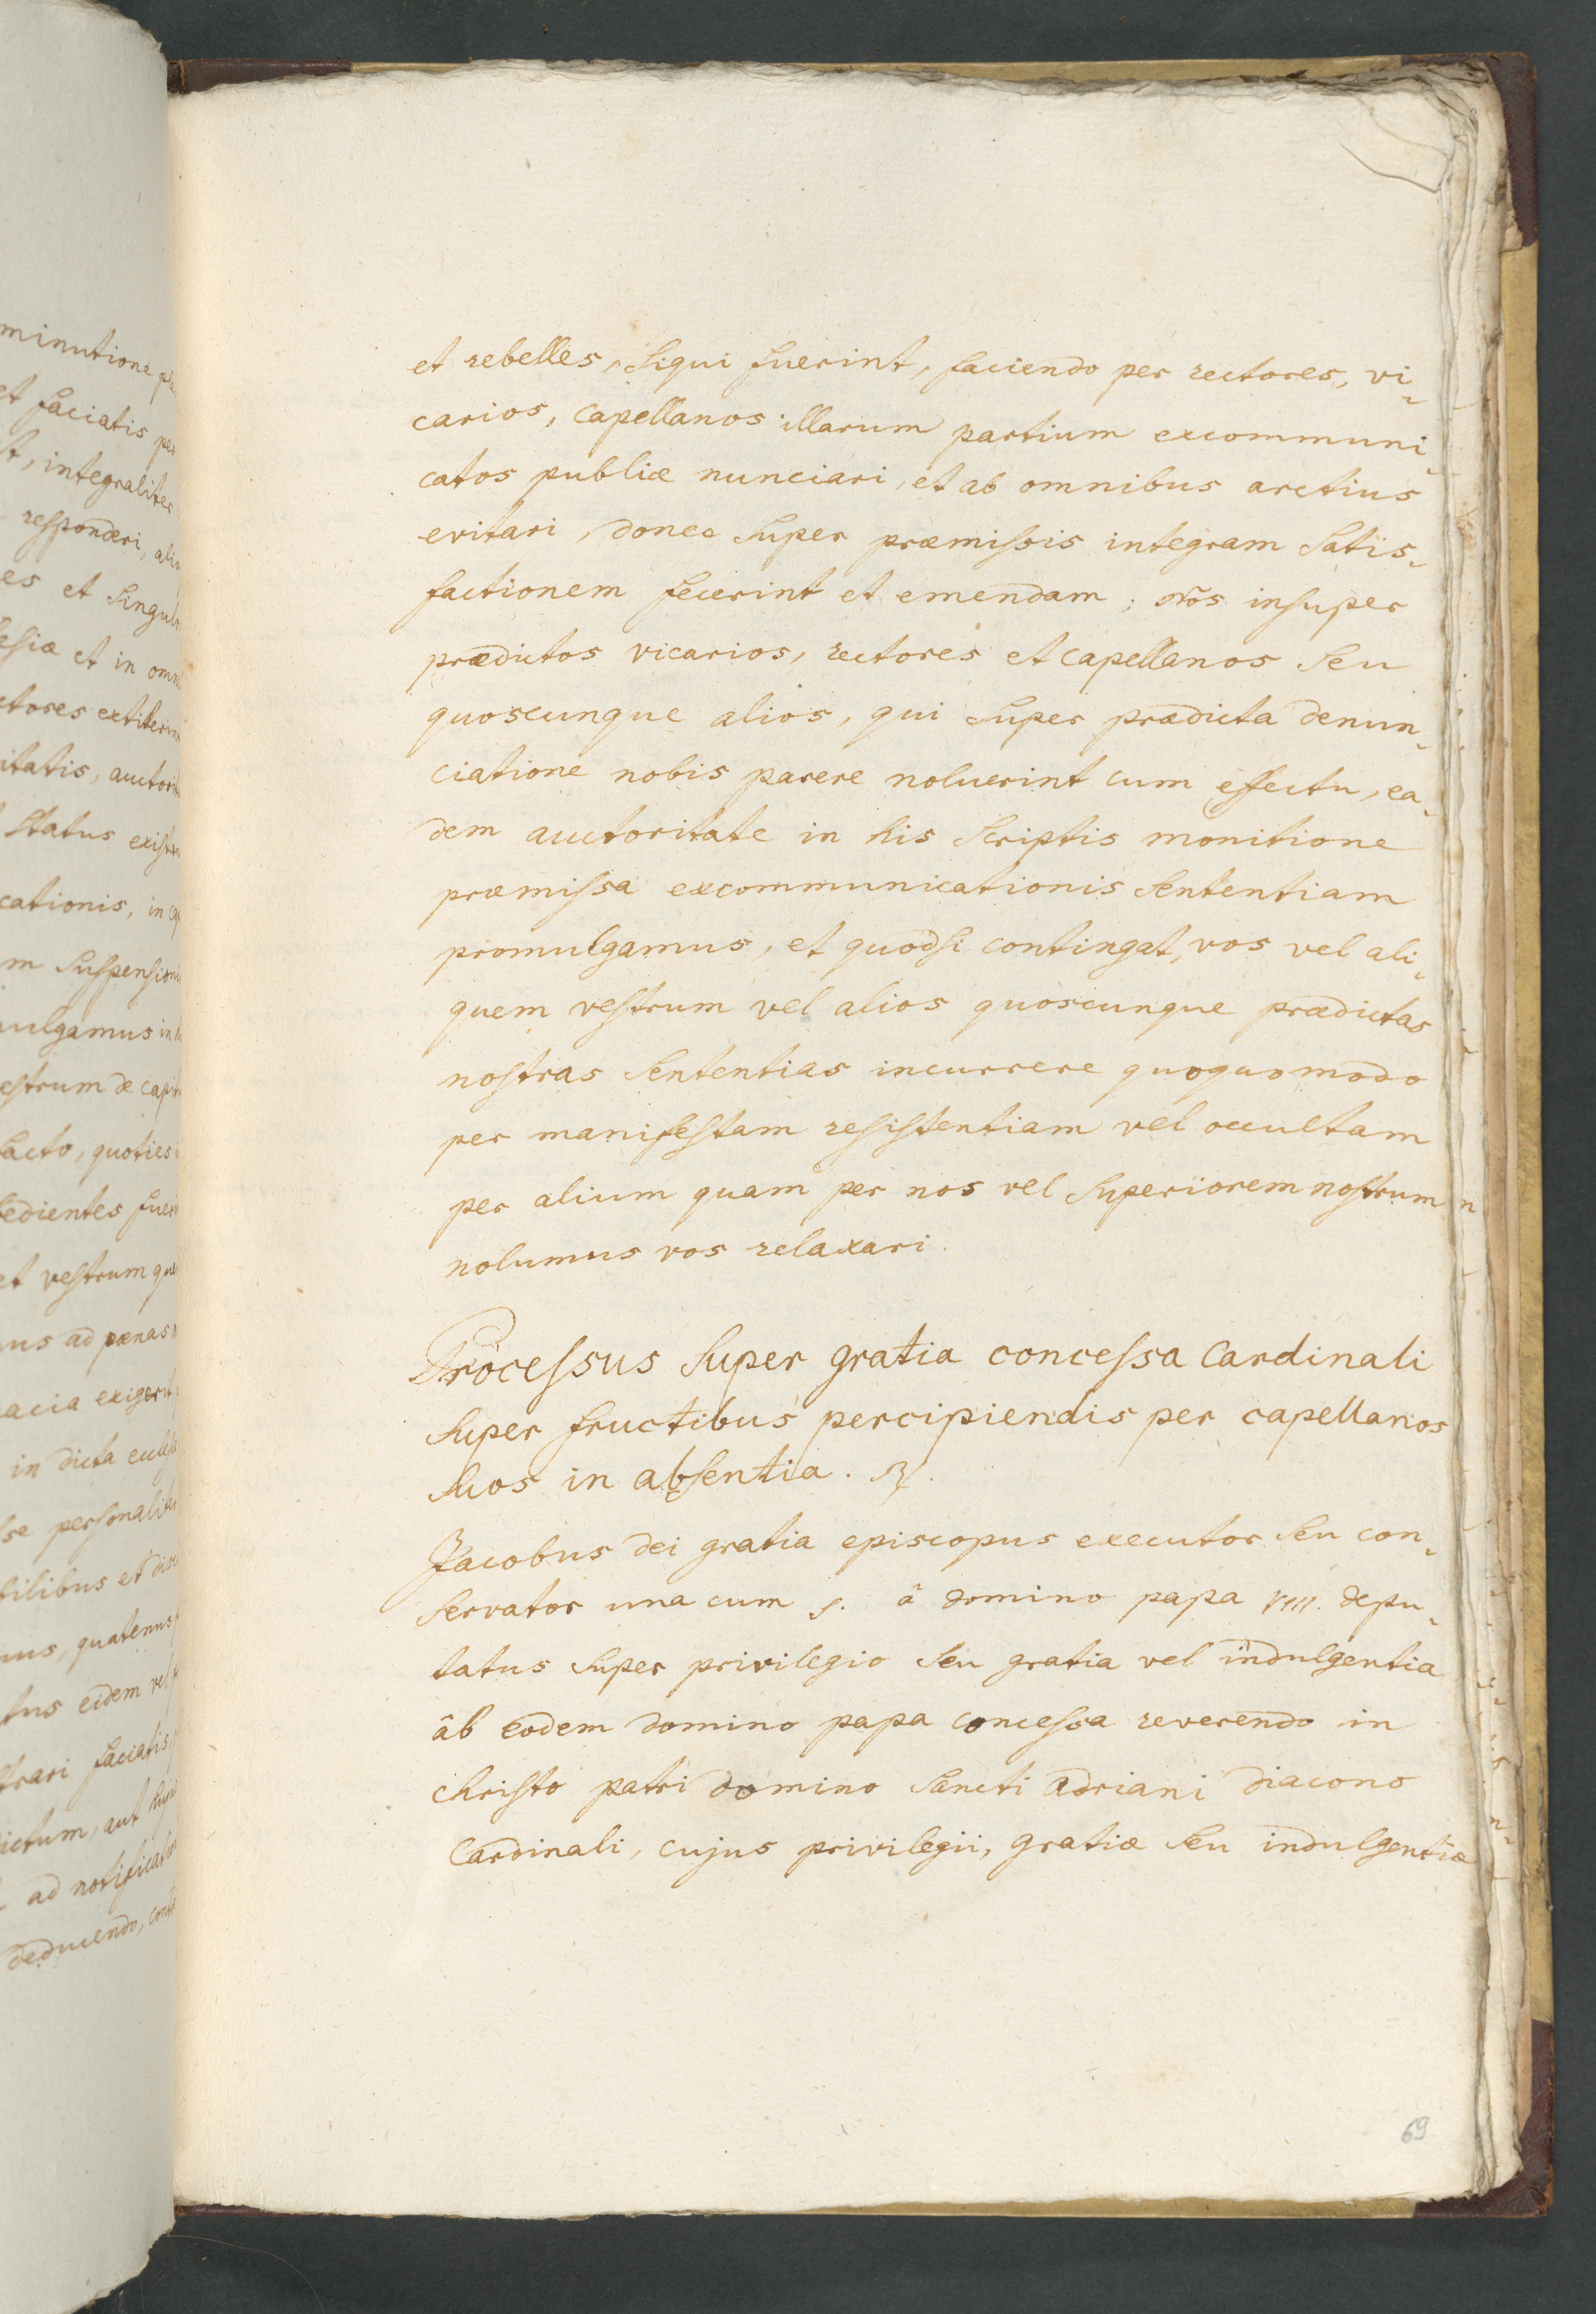 minutione
et faciatis per
integraliter
responderi,
es et singul
et in om
ctores extiterin
itatis, auctorit
status exist
cationis, in
m suspension
ulgamus in
estrum de capit
facto, quoties
edientes fuer
et vestrum
us ad pœnas
acia exigerit
in dicta eccles
se personalit
bilibus et disc
us, quatenus
tus eidem vel
trari faciatis
ictum, aut
ad notificat
deducendo, con
et rebelles, siqui fuerint, faciendo per rectores, vi-
carios, capellanos illarum partium excommuni-
catos publicè nunciari, et ab omnibus arctius
evitari, donec super præmissis integram satis-
factionem fecerint et emendam; nos insuper
prædictos vicarios, rectores et capellanos seu
quoscunque alios, qui super prædicta denun-
ciatione nobis parere noluerint cum effectu, ea-
dem auctoritate in his scriptis monitione
præmissa excommunicationis sententiam
promulgamus, et quodsi contingat, vos vel ali-
quem vestrum vel alios quoscunque prædictas
nostras sententias incurrere quoquomodo
per manifestam resistentiam vel occultam
per alium quam per nos vel superiorem nostrum
nolumus vos relaxari.
Processus super gratia concessa Cardinali
super fructibus percipiendis per capellanos
suos in absentia. R.
Jacobus dei gratia episcopus executor seu con-
servator una cum s. â domino papa VIII. depu-
tatus super privilegio seu gratia vel indulgentia
âb eodem domino papa concessa reverendo in
christo patri domino sancti Adriani diacono
Cardinali, cujus privilegii, gratiæ seu indulgentiæ
69